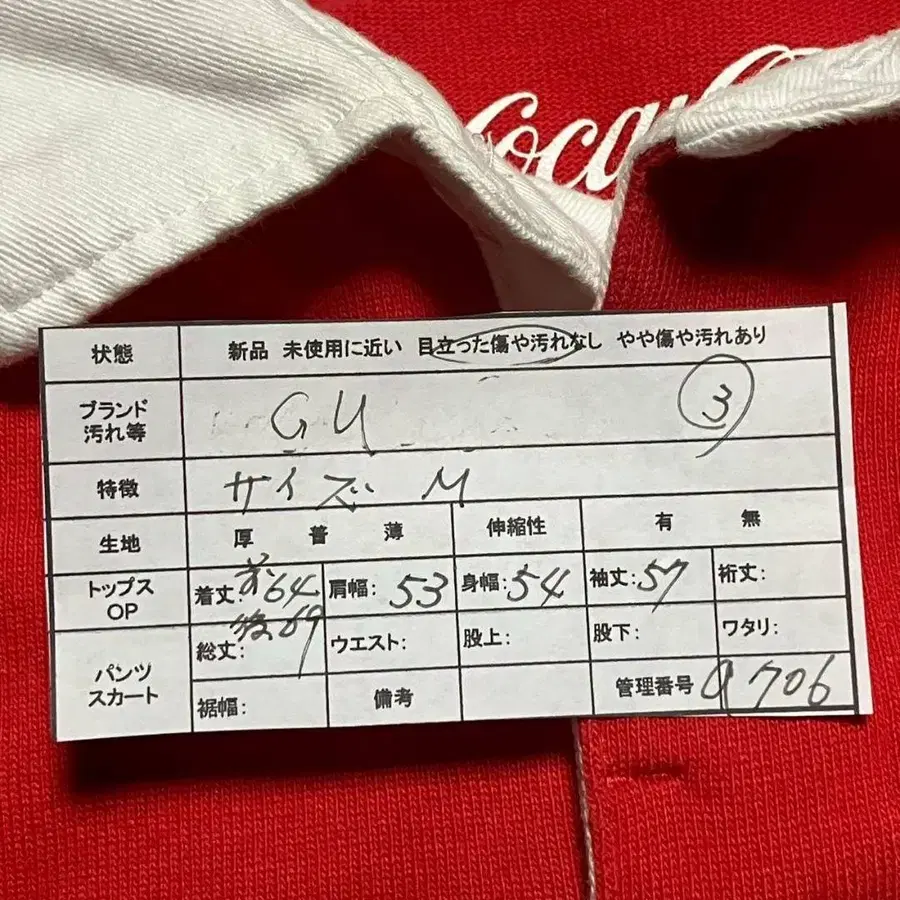 Coca-C
状態 新品 未使用に近い 目立った傷や汚れなし やや傷や汚れあり
ブランド
汚れ等 GU ③
特徴 サイズ M
生地 厚 普 薄 伸縮性 有 無
トップス
OP 着丈:前64 肩幅:53 身幅:54 袖丈:57 裄丈:
後69
パンツ
スカート 総丈: ウエスト: 股上: 股下: ワタリ:
裾幅: 備考 管理番号 9706